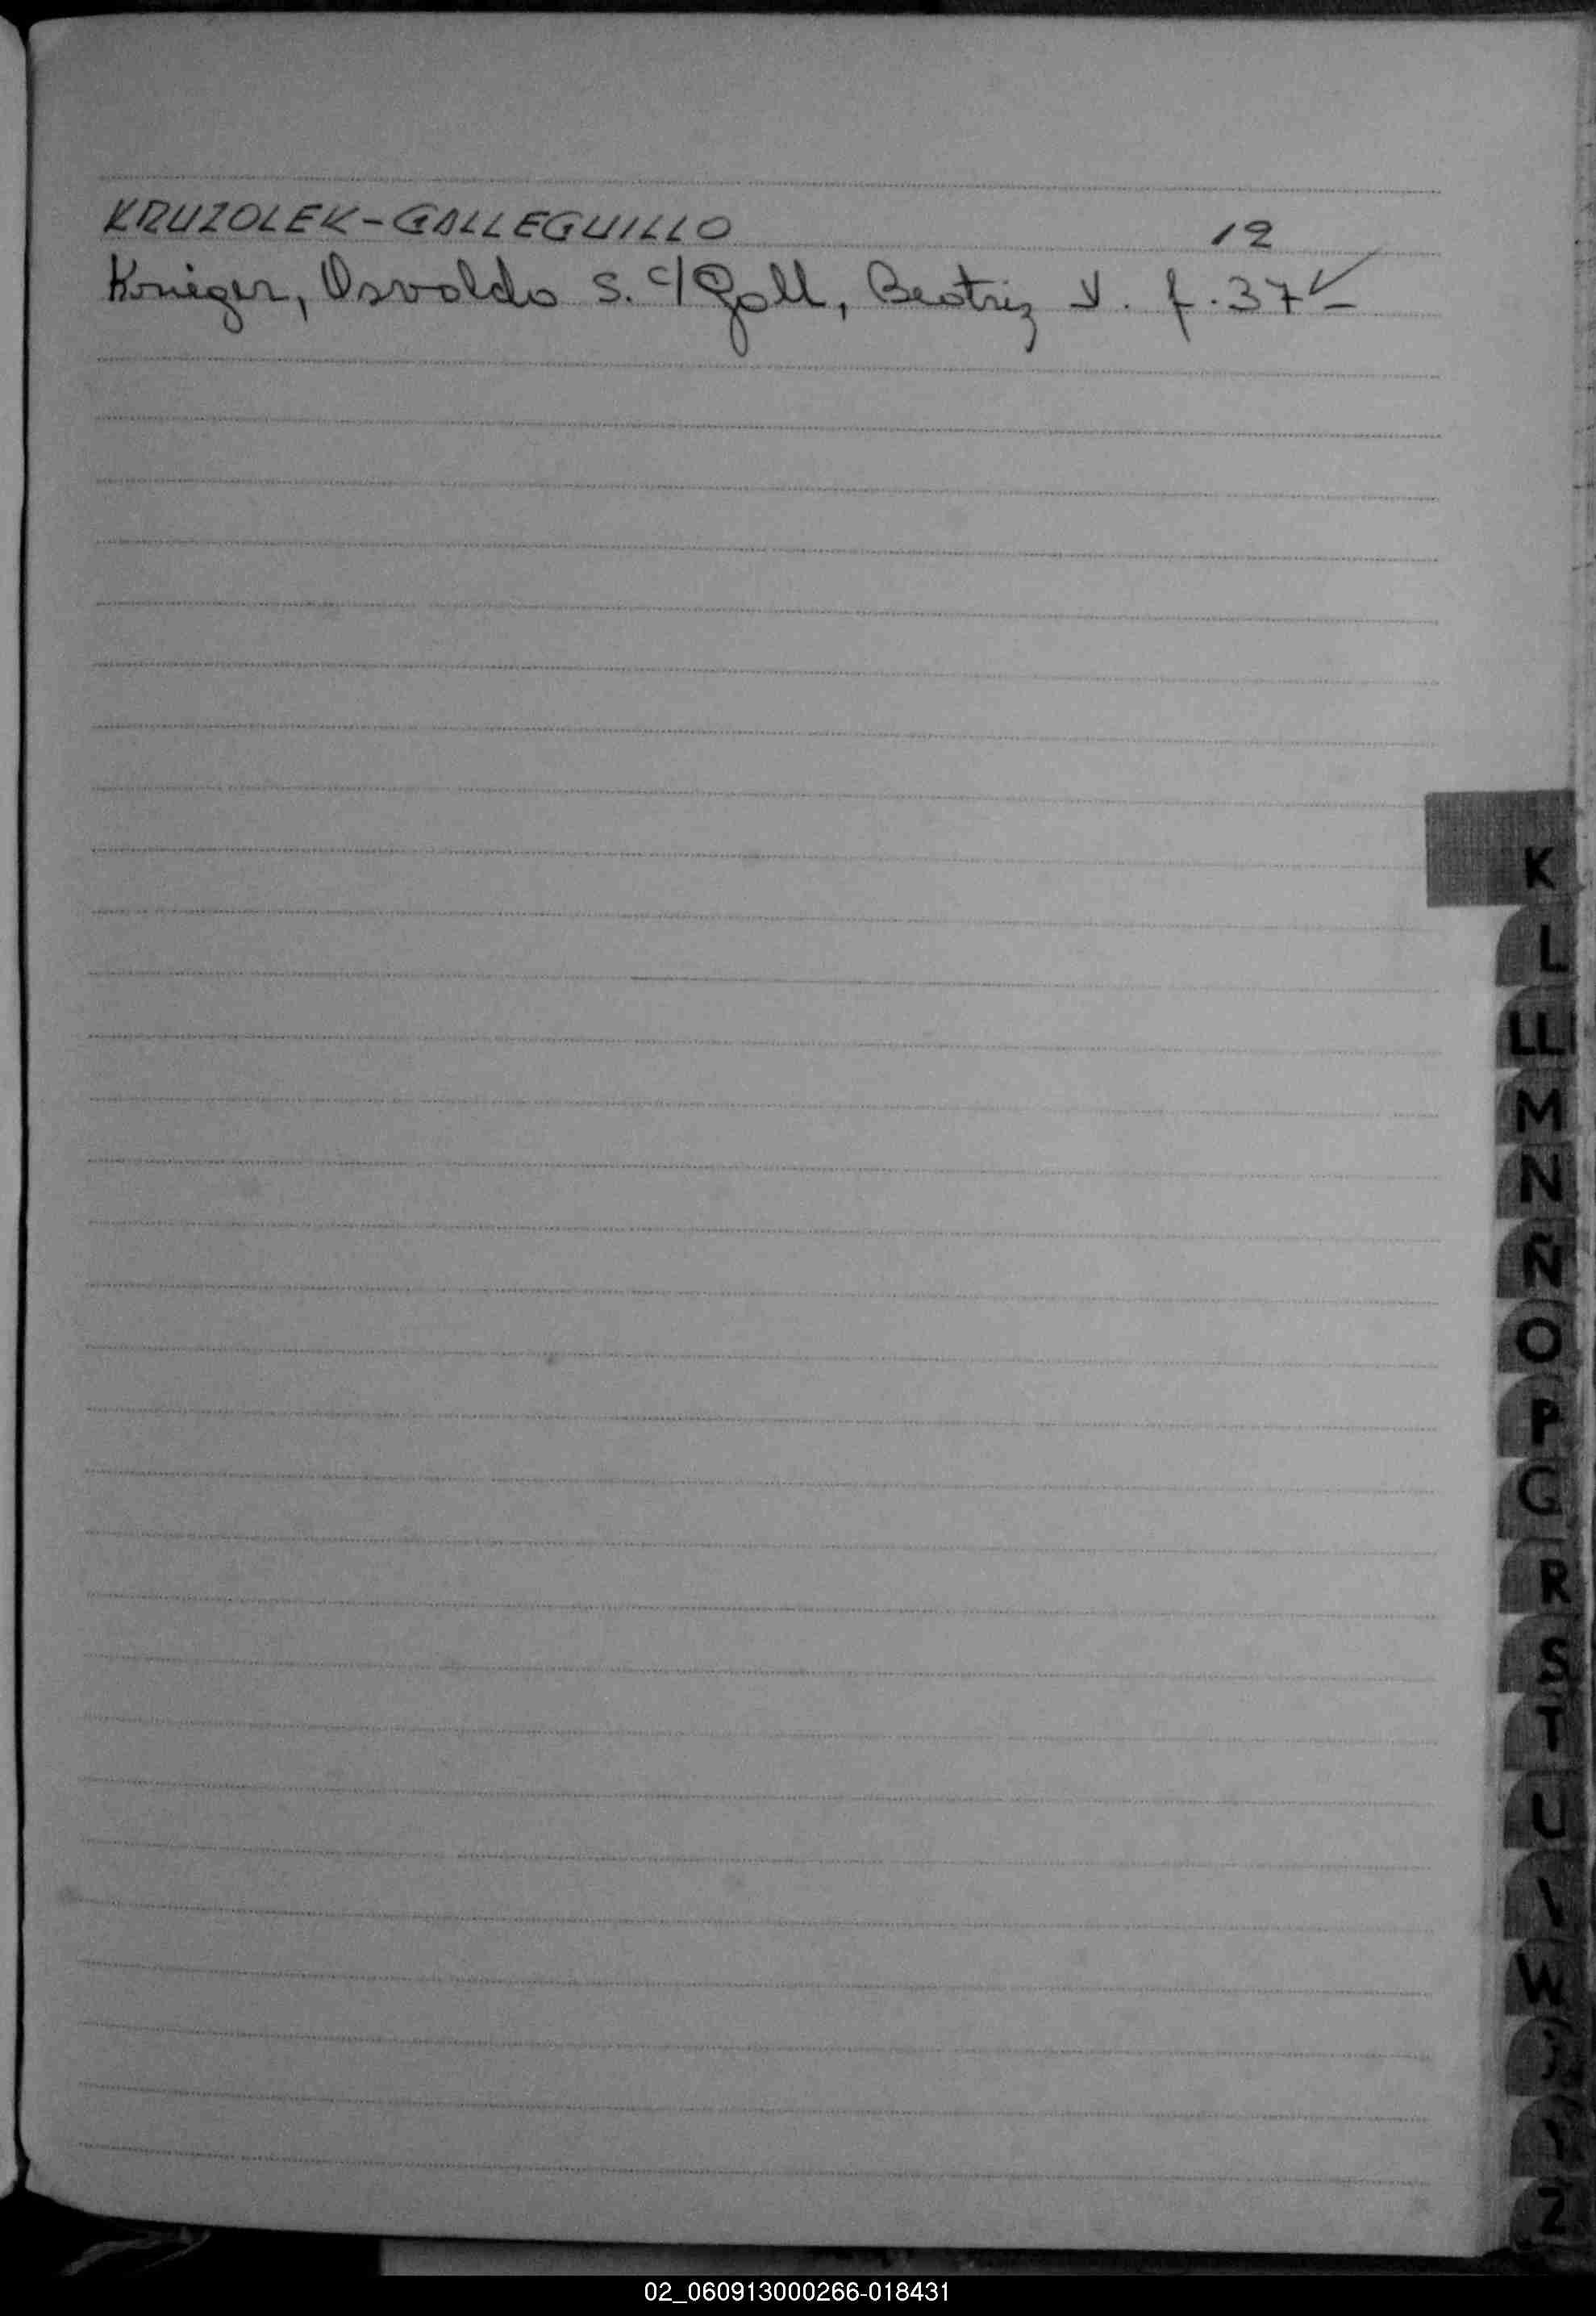 KRUZOLEK-GALLEGUILLO 12
Krieger, Osvaldo S. c/ Goll, Beatriz V. f. 37
K
L
LL
M
N
Ñ
O
P
R
S
T
U
W
Z
02_060913000266-018431